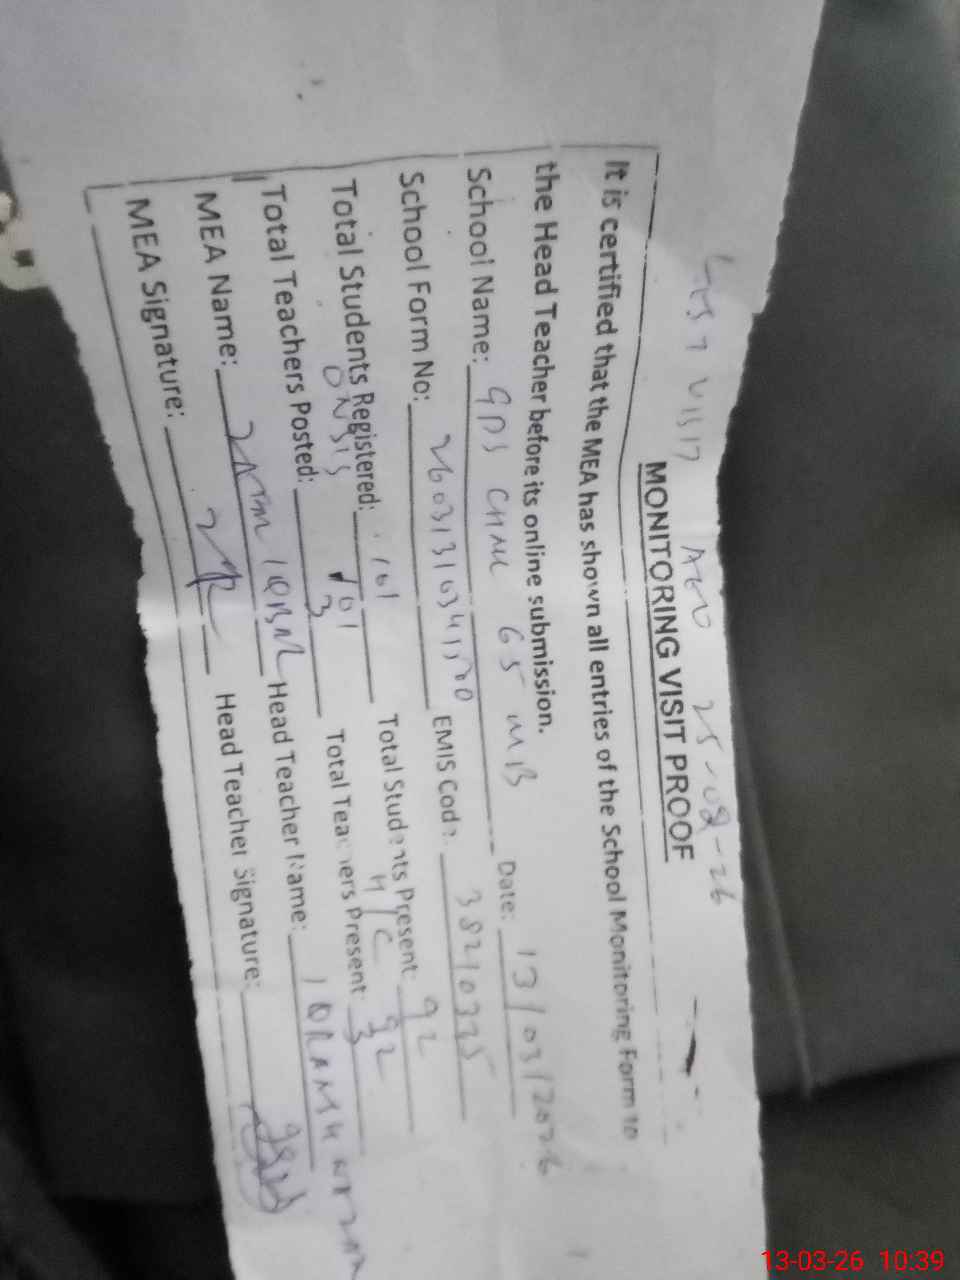 MONITORING VISIT PROOF
It is certified that the MEA has shown all entries of the School Monitoring Form to
the Head Teacher before its online submission.
School Name: GPS 65 MB Date: 13/03/2026
School Form No: EMIS Code: 38210335
Total Students Registered: 101 Total Students Present: 92
101 H/C 92
Total Teachers Posted: 3 Total Teachers Present: 3
MEA Name: Head Teacher Name:
MEA Signature: Head Teacher Signature:
13-03-26 10:39